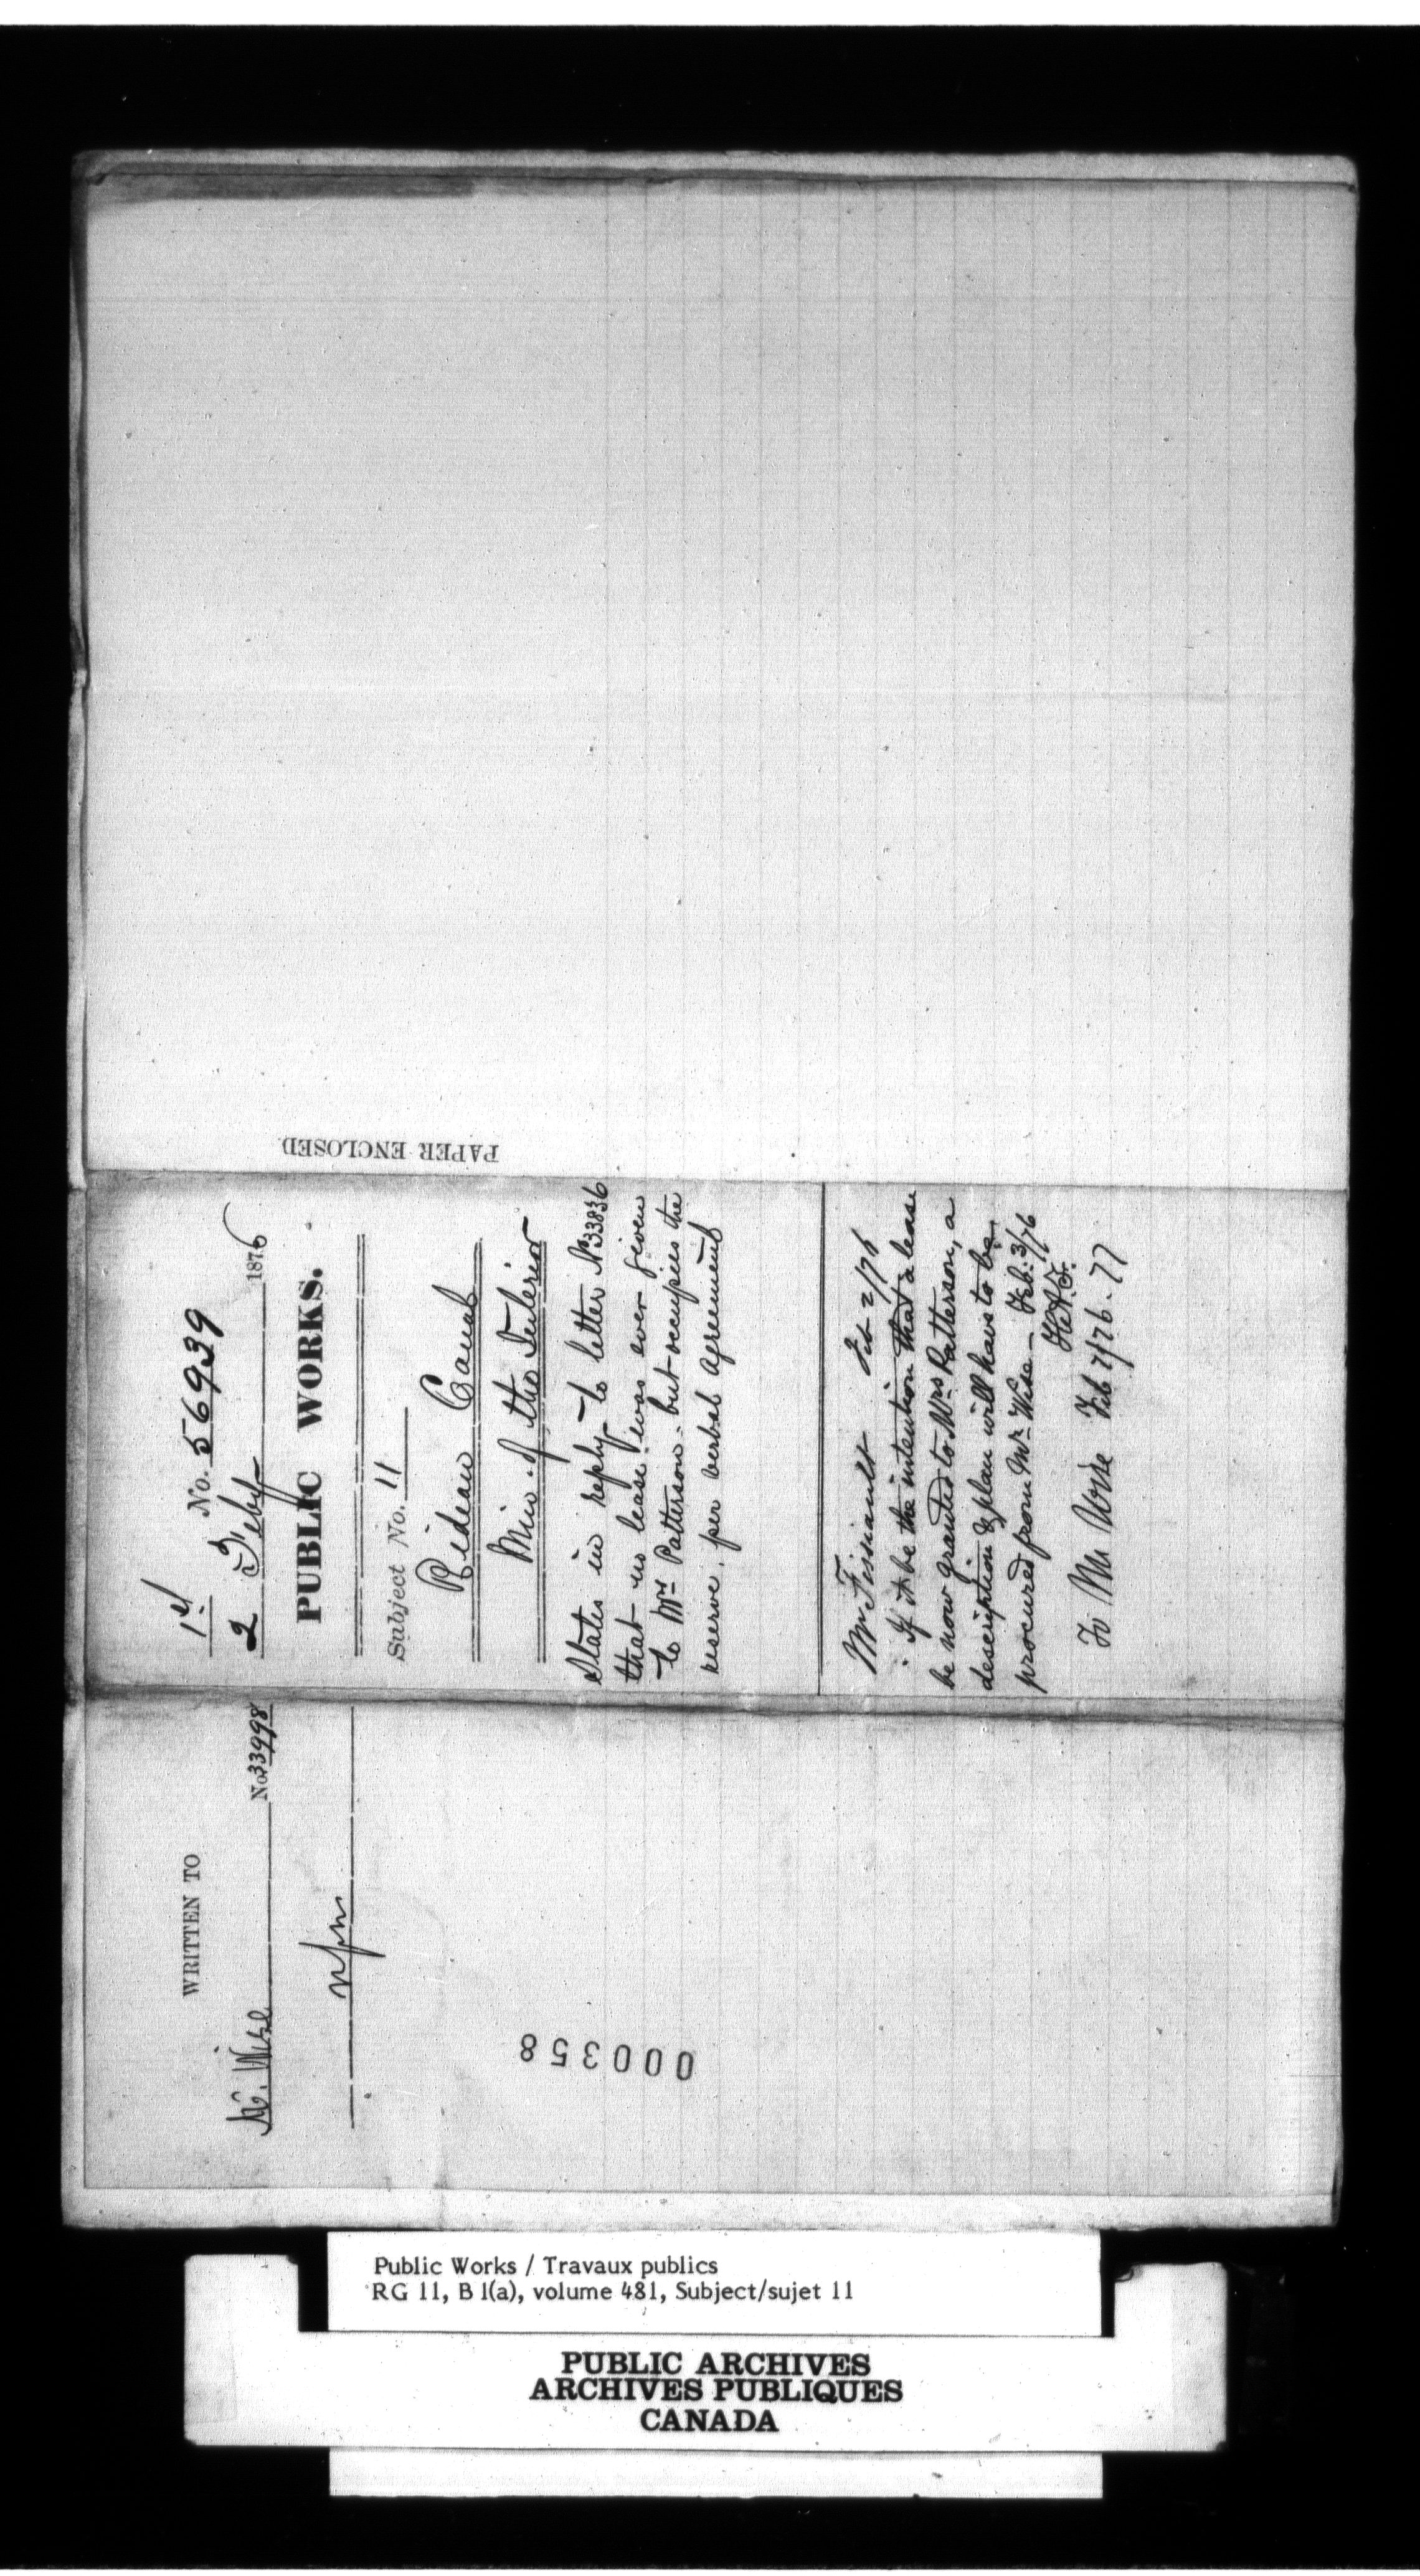 WRITTEN TO
Mr. Wise No. 33998
000358
1st No. 56939
2 Feby 1876
PUBLIC WORKS.
Subject No. 11
Rideau Canal
Min. of the Interior
States in reply to letter No 33836
that no lease was ever given
to Mrs Patterson - but occupies the
reserve, per verbal agreement
Mr Fissiault Feb 2/76
If it be the intention that a lease
be now granted to Mrs Patterson, a
description & plan will have to be
procured from Mr Wise - Feb: 3/76
H.A.F.
To Mr Wise Feb 7/76.
PAPER ENCLOSED
Public Works / Travaux publics
RG 11, B 1(a), volume 481, Subject/sujet 11
PUBLIC ARCHIVES
ARCHIVES PUBLIQUES
CANADA